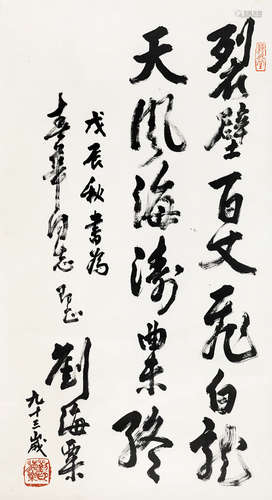 裂壁百丈飛白龍
天風海濤曲未終
戊辰秋書為
喜華同志
劉海粟
九十三歲